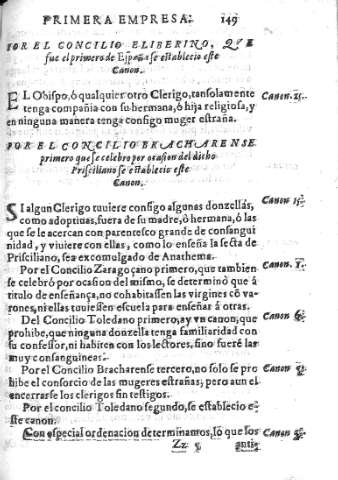 PRIMERA EMPRESA. 149
POR EL CONCILIO ELIBERINO, QVE
fue el primero de España se establecio este
Canon.
EL Obispo, ò qualquier otro Clerigo, tansolamente
tenga compañia con su hermana, ò hija religiosa, y
en ninguna manera tenga consigo muger estraña.
Canon.
POR EL CONCILIO BRACHARENSE
primero que se celebro por ocasion del dicho
Prisciliano se establecio este
Canon.
SI algun Clerigo tuuiere consigo algunas donzellas,
como adoptiuas, fuera de su madre, ò hermana, ò las
que se le acercan con parentesco grande de consangui
nidad, y viuiere con ellas, como lo enseña la secta de
Prisciliano, sea excomulgado de Anathema.
Canon 15.
Por el Concilio Zaragoçano primero, que tambien
se celebró por ocasion del mismo, se determinò que à
titulo de enseñança, no cohabitassen las virgines cõ va-
rones, ni ellas tuuiessen escuela para enseñar à otras.
Canon. 1.
Del Concilio Toledano primero, ay vn canon, que
prohibe, que ninguna donzella tenga familiaridad con
su confessor, ni habiten con los lectores, sino fueré las
muy consanguineas.
Canon 6.
Por el Concilio Bracharense tercero, no solo se pro
hibe el consorcio de las mugeres estrañas, pero aun el
encerrarse los clerigos sin testigos.
Canon
Por el concilio Toledano segundo, se establecio es-
te canon.
Con especial ordenacion determinamos, q̃ los
Canon
Zz anti-